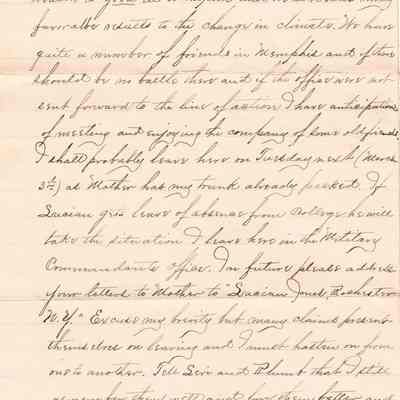 favorable results to the change in climate. We have
quite a number of friends in Memphis and if there
should be no battle there and if the office were not
sent forward to the line of action I have anticipations
of meeting and enjoying the company of some old friends
I shall probably leave here on Tuesday next (March
3d) as Mother has my trunk already packed. If
Lucian gets leave of absence from College he will
take the situation I leave here in the Military
Commandants office. In future please address
your letters to Mother to "Lucian Jones, Rochester
N.Y." Excuse my brevity but many claims present
themselves on leaving and I must hasten on from
one to another. Tell Levi and Plumb that I still
remember them well and love them better and